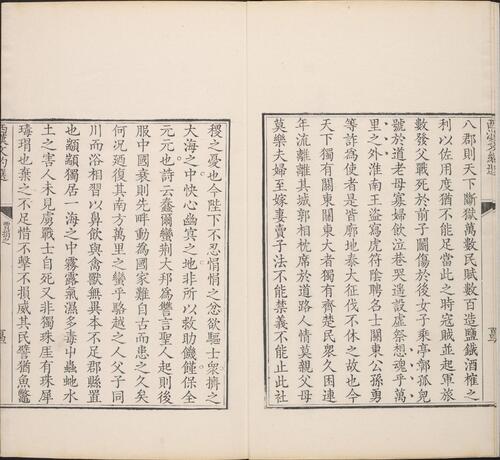 八郡則天下斷獄萬數民賦數百造鹽鐵酒榷之
利以佐用度猶不能足當此之時寇賊並起軍旅
數發父戰死於前子鬭傷於後女子乘亭鄣孤兒
號於道老母寡婦飲泣巷哭遥設虛祭想魂乎萬
里之外淮南王盜寫虎符陰聘名士關東公孫勇
等詐為使者是皆廓地泰大征伐不休之故也今
天下獨有關東關東大者獨有齊楚民衆久困連
年流離離其城郭相枕席於道路人情莫親父母
莫樂夫婦至嫁妻賣子法不能禁義不能止此社
稷之憂也今陛下不忍悁悁之忿欲驅士衆擠之
大海之中快心幽冥之地非所以救助饑饉保全
元元也詩云蠢爾蠻荆大邦為讐言聖人起則後
服中國衰則先畔動為國家難自古而患之久矣
何况廼復其南方萬里之蠻乎駱越之人父子同
川而浴相習以鼻飲與禽獸無異本不足郡縣置
也顓顓獨居一海之中霧露氣濕多毒中蟲蛇水
土之害人未見虜戰士自死又非獨珠厓有珠犀
瑇瑁也棄之不足惜不擊不損威其民譬猶魚鼈